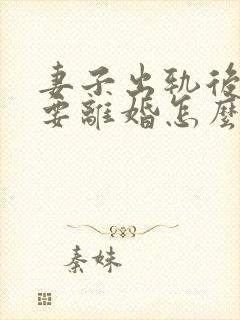 妻子出軌後
要離婚怎麼
秦妹